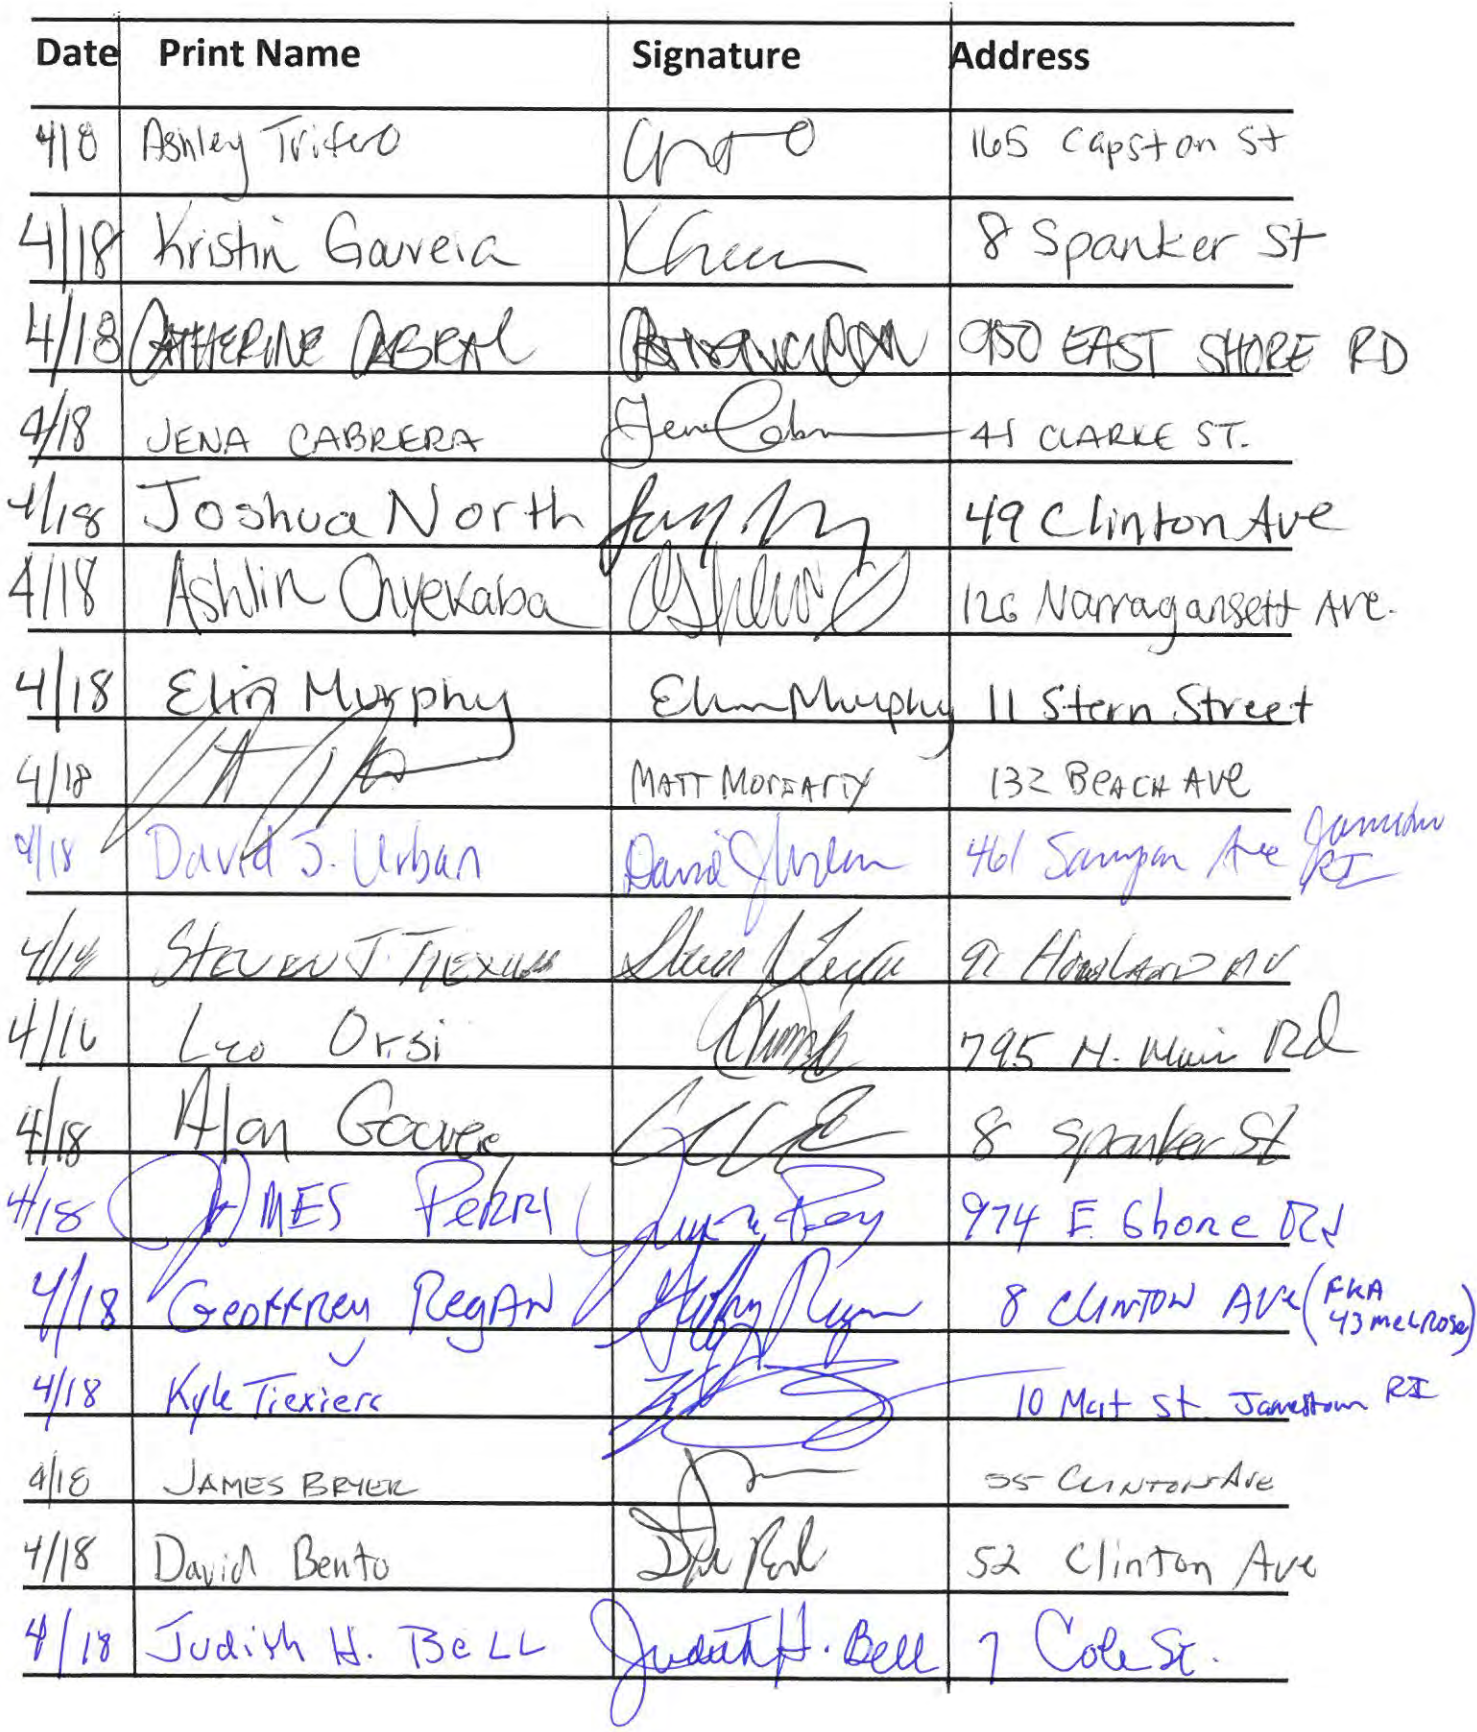 Date Print Name Signature Address
4/8 Ashley Trifero 165 Capston St
4/18 Kristin Gouveia 8 Spanker St
4/18 CATHERINE CABRAL 950 EAST SHORE RD
4/18 JENA CABRERA Jena 41 CLARKE ST.
4/18 Joshua North 49 Clinton Ave
4/18 Ashlin Onyekaba 126 Narragansett Ave.
4/18 Elin Murphy Elin Murphy 11 Stern Street
4/18 MATT MORIARTY 132 BEACH AVE
4/18 David J. Urban David J Urban 461 Ave Jamestown RI
STEVEN J. Steven HOWLAND AV
4/16 Leo Orsi 795 N. Main Rd
4/18 Alan 8 Spanker St
4/18 JAMES PERRY 974 E Shore Rd
4/18 Geoffrey Regan 8 CLINTON Ave (FKA 43 melrose)
4/18 Kyle Tiexiera 10 St Jamestown RI
4/18 JAMES BRYER 55 CLINTON AVE
4/18 David Bento 52 Clinton Ave
4/18 Judith H. BeLL Judith H. Bell 7 Cole St.